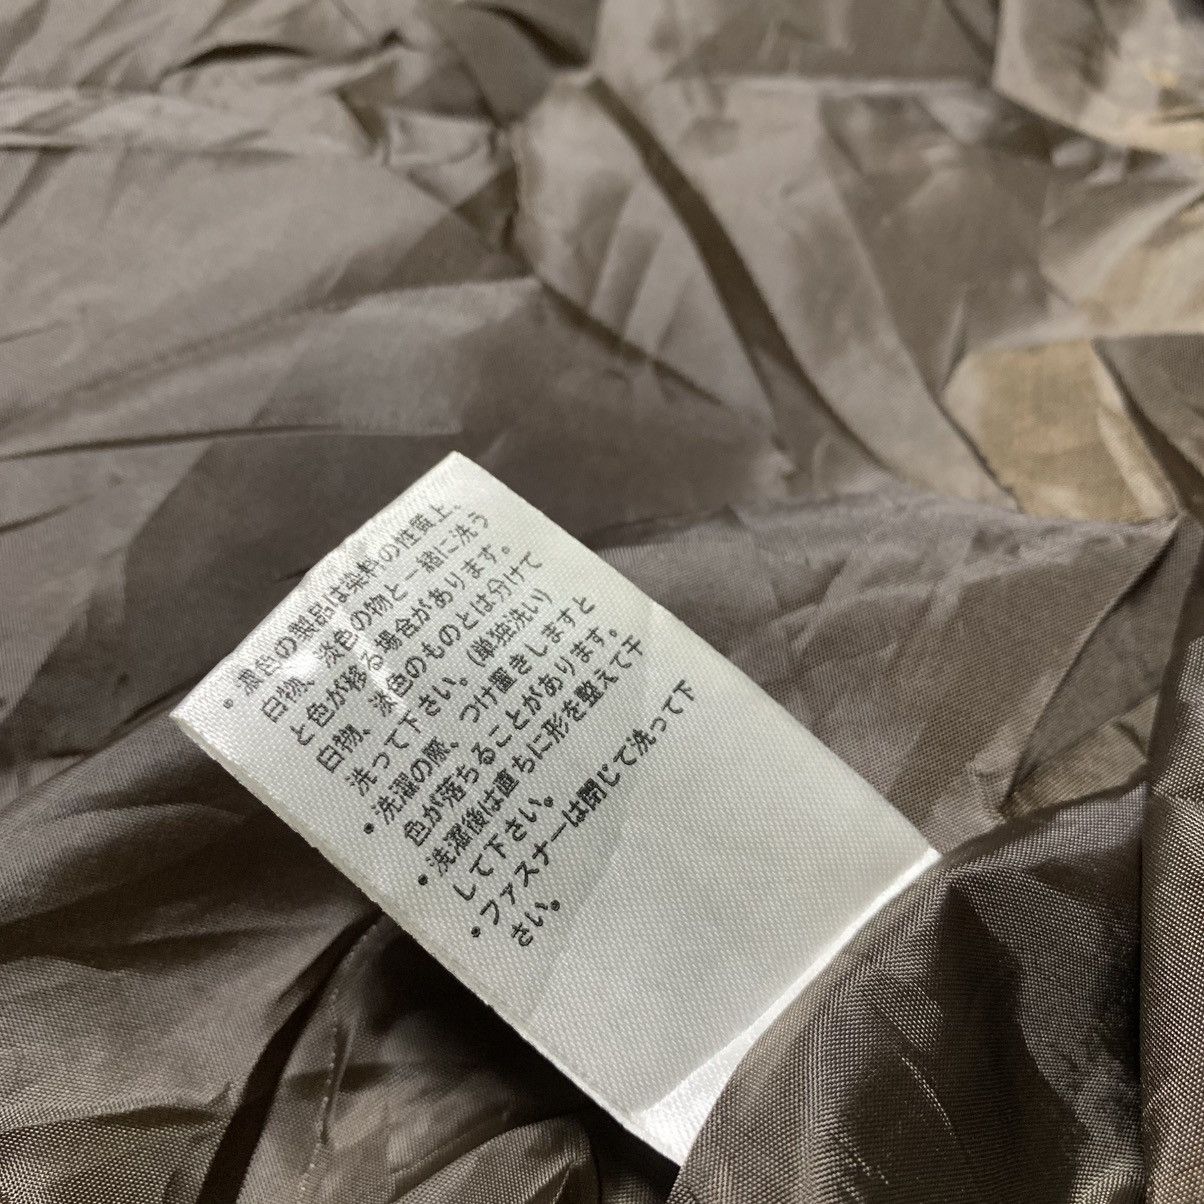 ・濃色の製品は染料の性質上、
白物、淡色の物と一緒に洗う
と色が移る場合があります。
白物、淡色のものとは分けて
洗って下さい。(単独洗い)
・洗濯の際、つけ置きしますと
色が落ちることがあります。
・洗濯後は直ちに形を整えて干
して下さい。
・ファスナーは閉じて洗って下
さい。